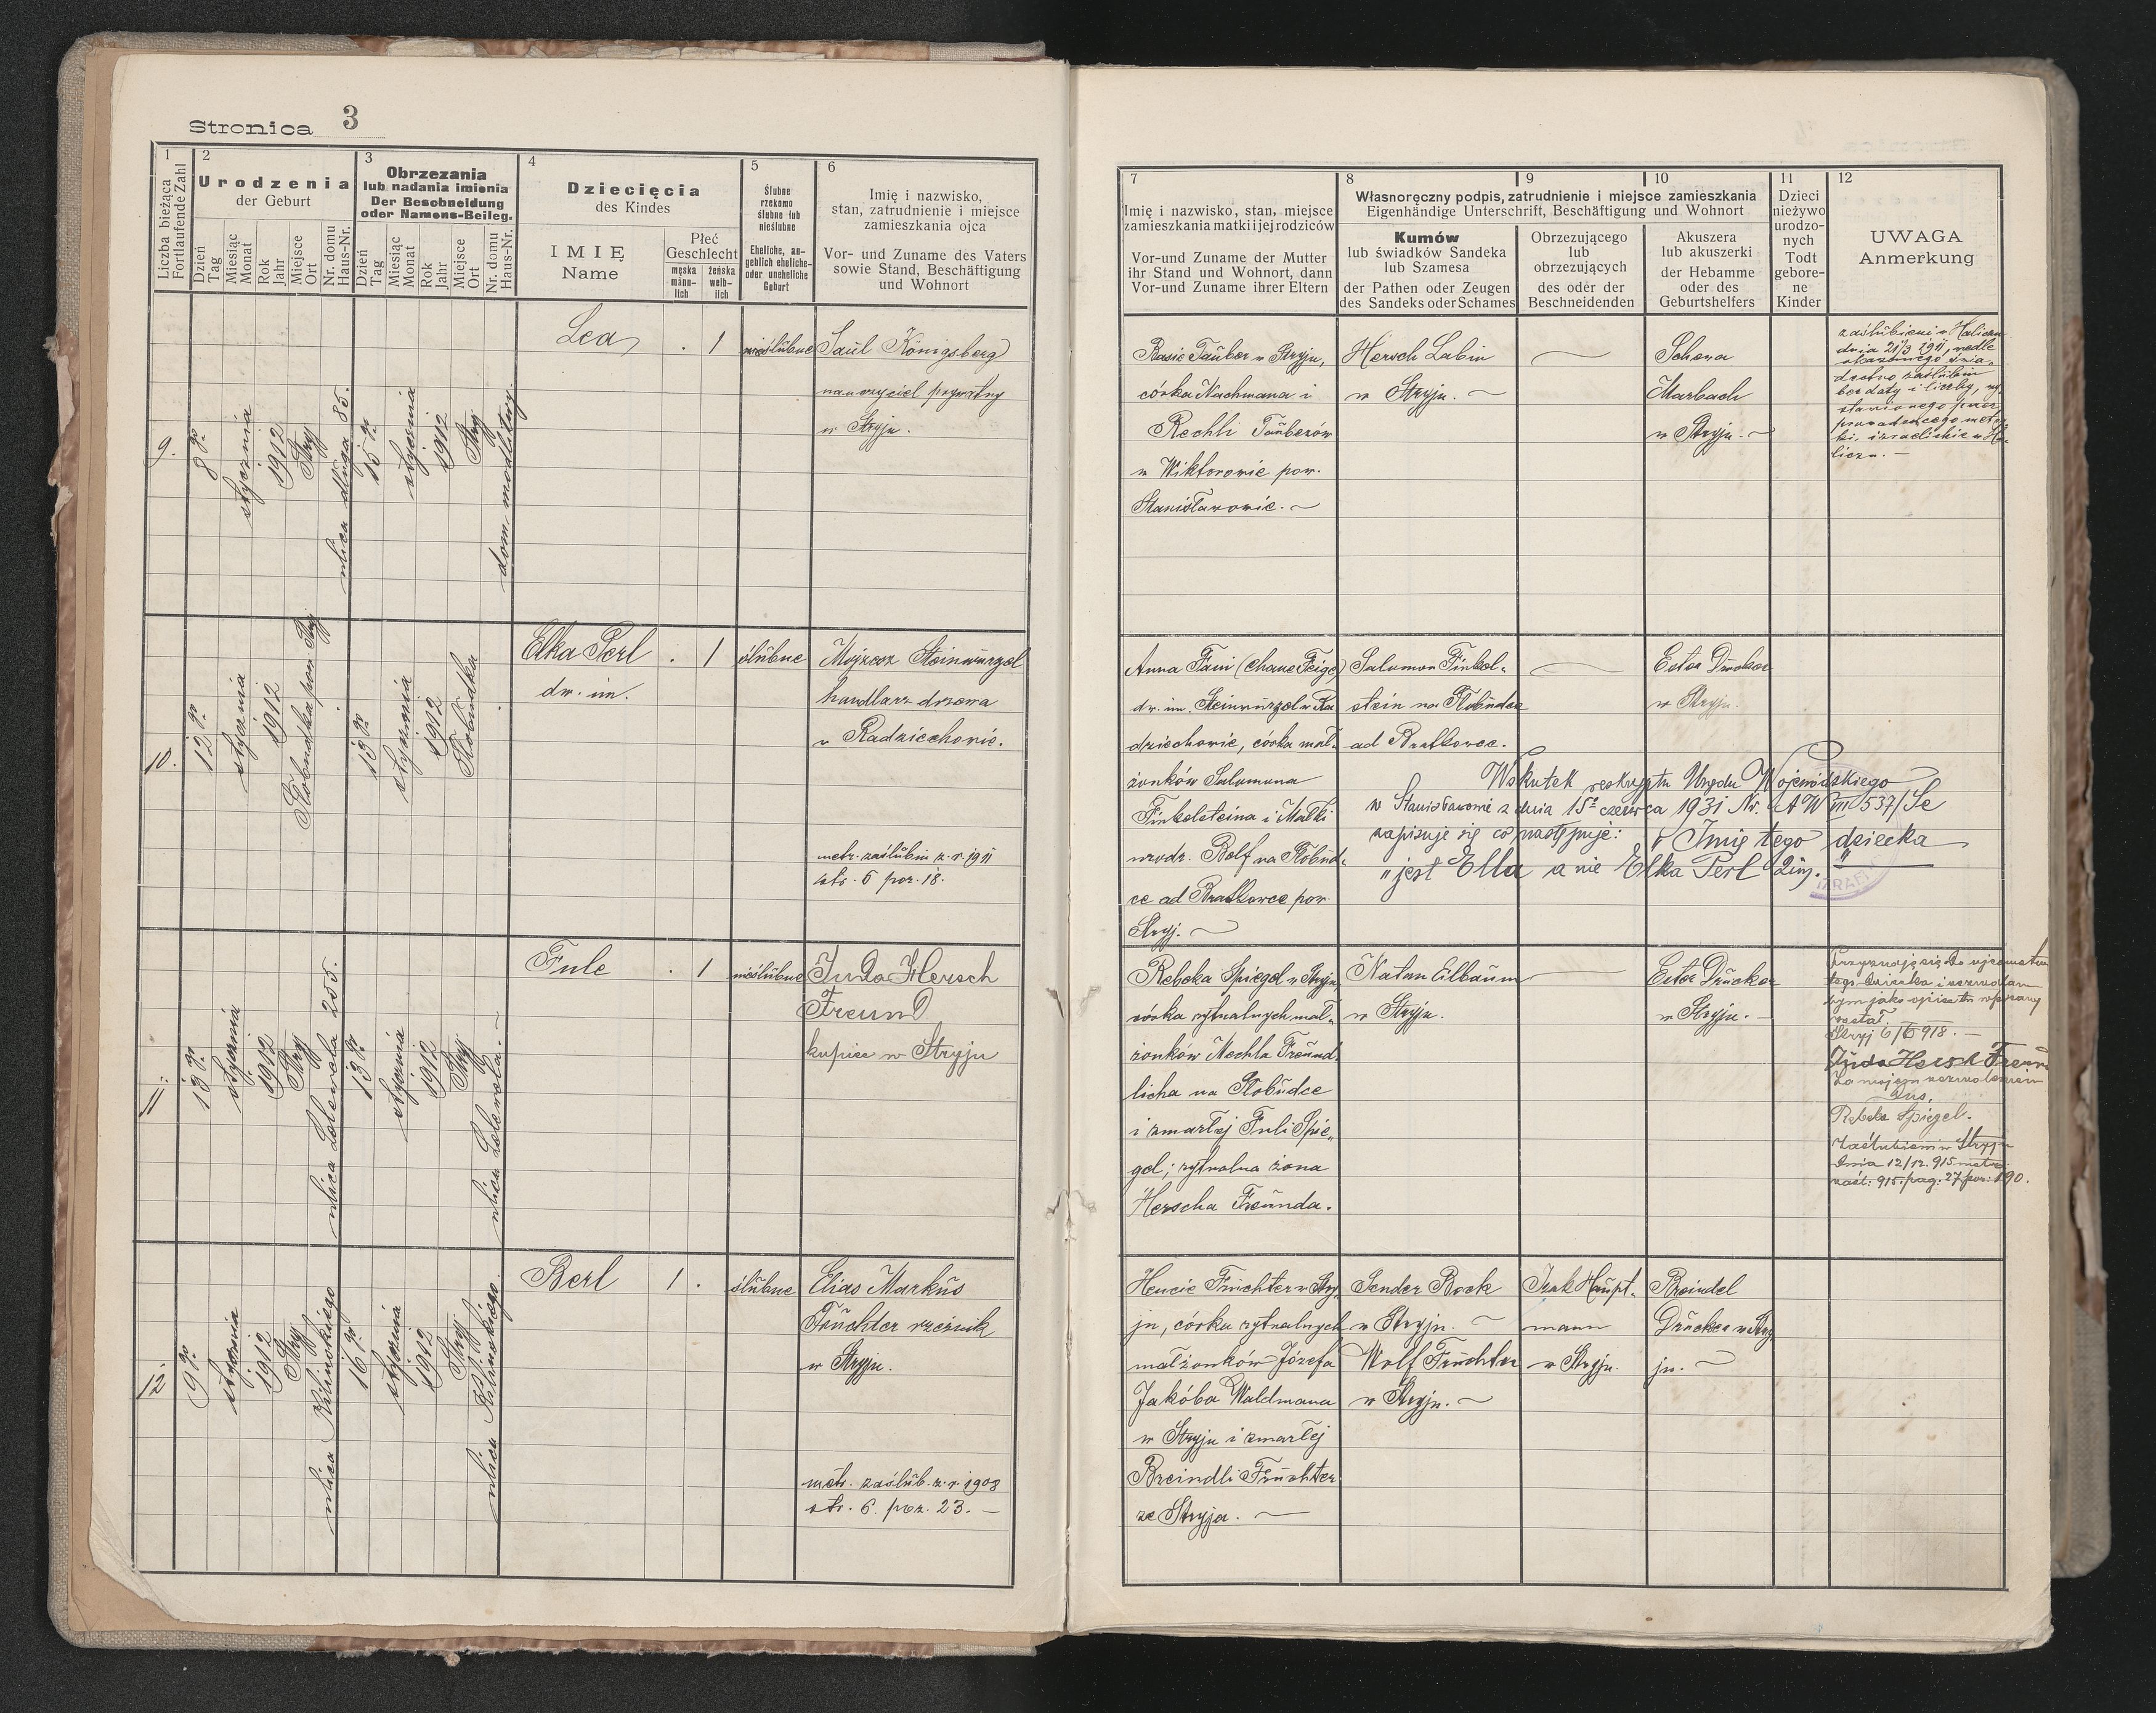 Stronica 3
1
Liczba bieżąca
Fortlaufende Zahl
2
Urodzenia
der Geburt
Dzień
Tag
Miesiąc
Monat
Rok
Jahr
Miejsce
Ort
Nr. domu
Haus-Nr.
3
Obrzezania
lub nadania imienia
Der Beschneidung
oder Namens-Beileg.
Dzień
Tag
Miesiąc
Monat
Rok
Jahr
Miejsce
Ort
Nr. domu
Haus-Nr.
4
Dziecięcia
des Kindes
IMIĘ
Name
Płeć
Geschlecht
męska
männ-
lich
żeńska
weib-
lich
5
Ślubne
rzekomo
ślubne lub
nieślubne
Eheliche, an-
geblich eheliche
oder uneheliche
Geburt
6
Imię i nazwisko,
stan, zatrudnienie i miejsce
zamieszkania ojca
Vor- und Zuname des Vaters
sowie Stand, Beschäftigung
und Wohnort
7
Imię i nazwisko, stan, miejsce
zamieszkania matki i jej rodziców
Vor-und Zuname der Mutter
ihr Stand und Wohnort, dann
Vor-und Zuname ihrer Eltern
8
9
10
Własnoręczny podpis, zatrudnienie i miejsce zamieszkania
Eigenhändige Unterschrift, Beschäftigung und Wohnort
Kumów
lub świadków Sandeka
lub Szamesa
der Pathen oder Zeugen
des Sandeks oder Schames
Obrzezującego
lub
obrzezujących
des oder der
Beschneidenden
Akuszera
lub akuszerki
der Hebamme
oder des
Geburtshelfers
11
Dzieci
nieżywo
urodzo-
nych
Todt
gebore-
ne
Kinder
12
UWAGA
Anmerkung
9.
8go
stycznia
1912
Stryj
ulica długa 85.
15go
stycznia
1912
Stryj
dom modlitwy
Lea
. 1
nieślubne
Saul Königsberg
nauczyciel prywatny
w Stryju.
Basie Tauber w Stryju,
córka Nachmana i
Rechli Tauberów
w Wiktorowie pow.
Stanisławowie.
Hersch Labin
w Stryju.
Schewa
Marbach
w Stryju.
zaślubieni w Haliczu
dnia 21/3 1911, wedle
okazanego świa-
dectwa zaślubin
bez daty i liczby, wy-
stawionego przez
prowadzącego metry-
ki izraelickie w Ha-
liczu.
10.
12go
stycznia
1912
Słobudka pow Stryj
13go
stycznia
1912
Słobudka
Elka Perl
dw. im.
. 1
ślubne
Mojżesz Steinwurzel
handlarz drzewa
w Radziechowie.
metr. zaślubin z r. 1911
str. 6 poz. 18.
Anna Fani (Chane Feige)
dw. im. Steinwurzel w Ra
dziechowie, córka mał-
żonków Salamona
Finkelsteina i Małki
urodz. Bolf na Słobud-
ce ad Bratkowce pow.
Stryj.
Salamon Finkel-
stein na Słobudce
ad Bratkowce.
Ester Drucker
w Stryju.
Wskutek reskryptu Urzędu Wojewódzkiego
w Stanisławowie z dnia 15o czerwca 1931 Nr. AW VIII 537/Se
zapisuje się co następuje: "Imię tego dziecka
"jest Ella a nie Elka Perl 2im."
IZRAEL
11.
13go
stycznia
1912
Stryj
ulica Lolewela 255.
13go
stycznia
1912
Stryj
ulica Lolewela.
Fule
. 1
nieślubne
Juda Hersch
Freund
kupiec w Stryju
Rebeka Spiegel w Stryju,
córka rytualnych mał-
żonków Mechla Freund-
licha na Słobudce
i zmarłej Fuli Spie-
gel; rytualna żona
Herscha Freunda.
Natan Eilbaum
w Stryju.
Ester Drucker
w Stryju.
Przyznaję się do ojcostwa
tego dziecka i zezwalam
bym jako ojciec tu wpisany
został.
Stryj 6/6 918.
Juda Hersh Freund
Za mojem zezwoleniem
Rebeka Spiegel.
Zaślubieni w Stryju
dnia 12/12. 915 metr.
zaśl: 915. pag: 27 poz: 190.
12.
9go
stycznia
1912
Stryj
ulica Kilińskiego
16go
stycznia
1912
Stryj
ulica Kilińskiego
Berl
1 .
ślubne
Elias Markus
Früchter rzeźnik
w Stryju.
metr. zaślub. z r. 1908
str. 6. poz. 23.
Hencie Früchter w Stry-
ju, córka rytualnych
małżonków Józefa
Jakóba Waldmana
w Stryju i zmarłej
Breindli Früchter
ze Stryja.
Sender Bock
w Stryju.
Wolf Früchter
w Stryju.
Izak Haupt-
mann
w Stryju.
Breindel
Drucker w Stry
ju.